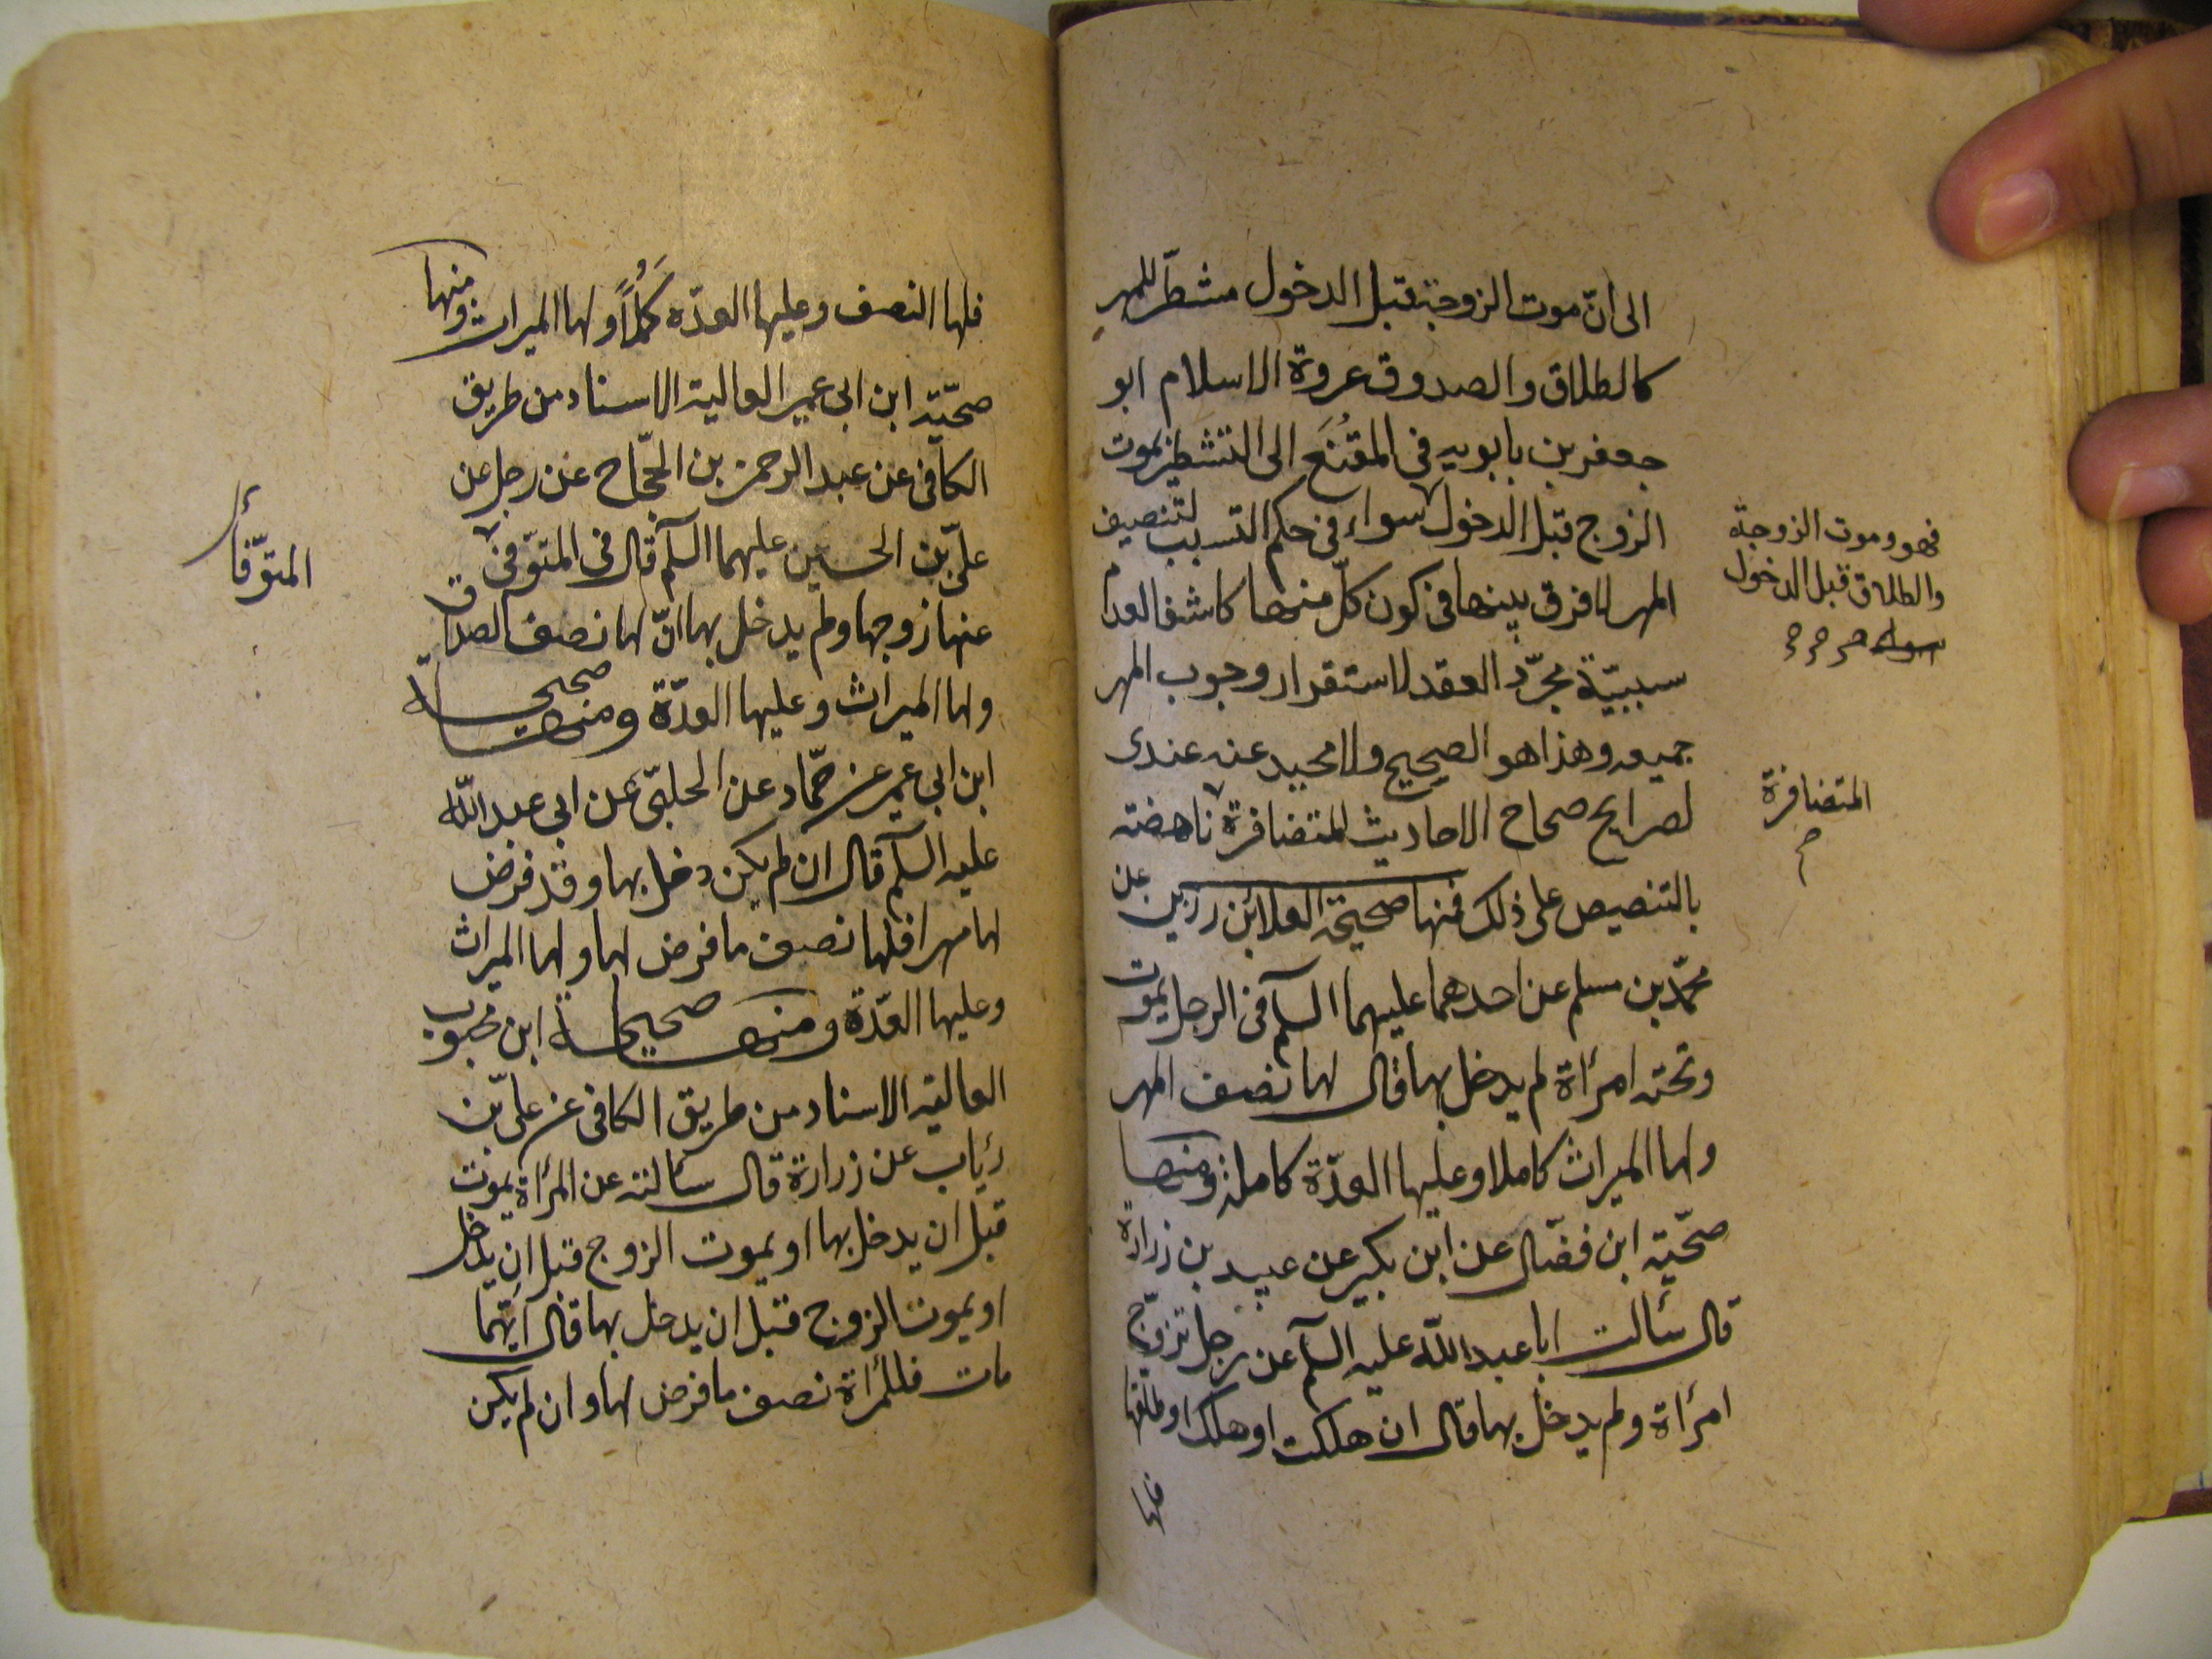 الى انّ موت الزوجة قبل الدخول مشطّر للمهر
كالطلاق والصدوق عروة الاسلام ابو
جعفر بن بابويه فى المقنع الى التشطير بموت
الزوج قبل الدخول سواء فى حكم التسبب لتنصيف
المهر لا فرق بينها فى كون كلّ منها كاشفا لعدم
سببيّة مجرّد العقد لاستقرار وجوب المهر
جميعه وهذا هو الصحيح ولا محيد عنه عندى
لصرايح صحاح الاحاديث المتضافرة ناهضته
بالتنصيص على ذلك فمنها صحيحة العلا بن رزين عن
محمّد بن مسلم عن احدهما عليهما السلم فى الرجل يموت
وتحته امرأة لم يدخل بها قال لها نصف المهر
ولها الميراث كاملا وعليها العدّة كاملة ومنها
صحّيّه ابن فضّال عن ابن بكير عن عبيد بن زرارة
قال سألت ابا عبد اللّه عليه السلم عن رجل تزوّج
امرأة ولم يدخل بها قال ان هلكت او هلك او طلقها
فلها
فهو وموت الزوجة
والطلاق قبل الدخول
سواء
المتضافرة
م
فلها النصف وعليها العدّه كَمُلًا ولها الميراث ومنها
صحّيّه ابن ابى عمير العالية الاسناد من طريق
الكافى عن عبد الرحمن بن الحجّاج عن رجل عن
علىّ بن الحسين عليهما السلم قال فى المتوّفى
عنها زوجها ولم يدخل بها انّ لها نصف الصداق
ولها الميراث وعليها العدّة ومنها صحيحة
ابن ابي عمير عن حمّاد عن الحلبىّ عن ابى عبد اللّه
عليه السلم قال ان لم يكن دخل بها وقد فرض
لها مهرا فلها نصف ما فرض لها ولها الميراث
وعليها العدّة ومنها صحيحة ابن محبوب
العالية الاسناد من طريق الكافى عن علىّ بن
رئاب عن زرارة قال سألته عن المرأة يموت
قبل ان يدخل بها او يموت الزوج قبل ان يدخل
او يموت الزوج قبل ان يدخل بها قال ايّهما
مات فللمرأة نصف ما فرض لها وان لم يكن
المتوّفا